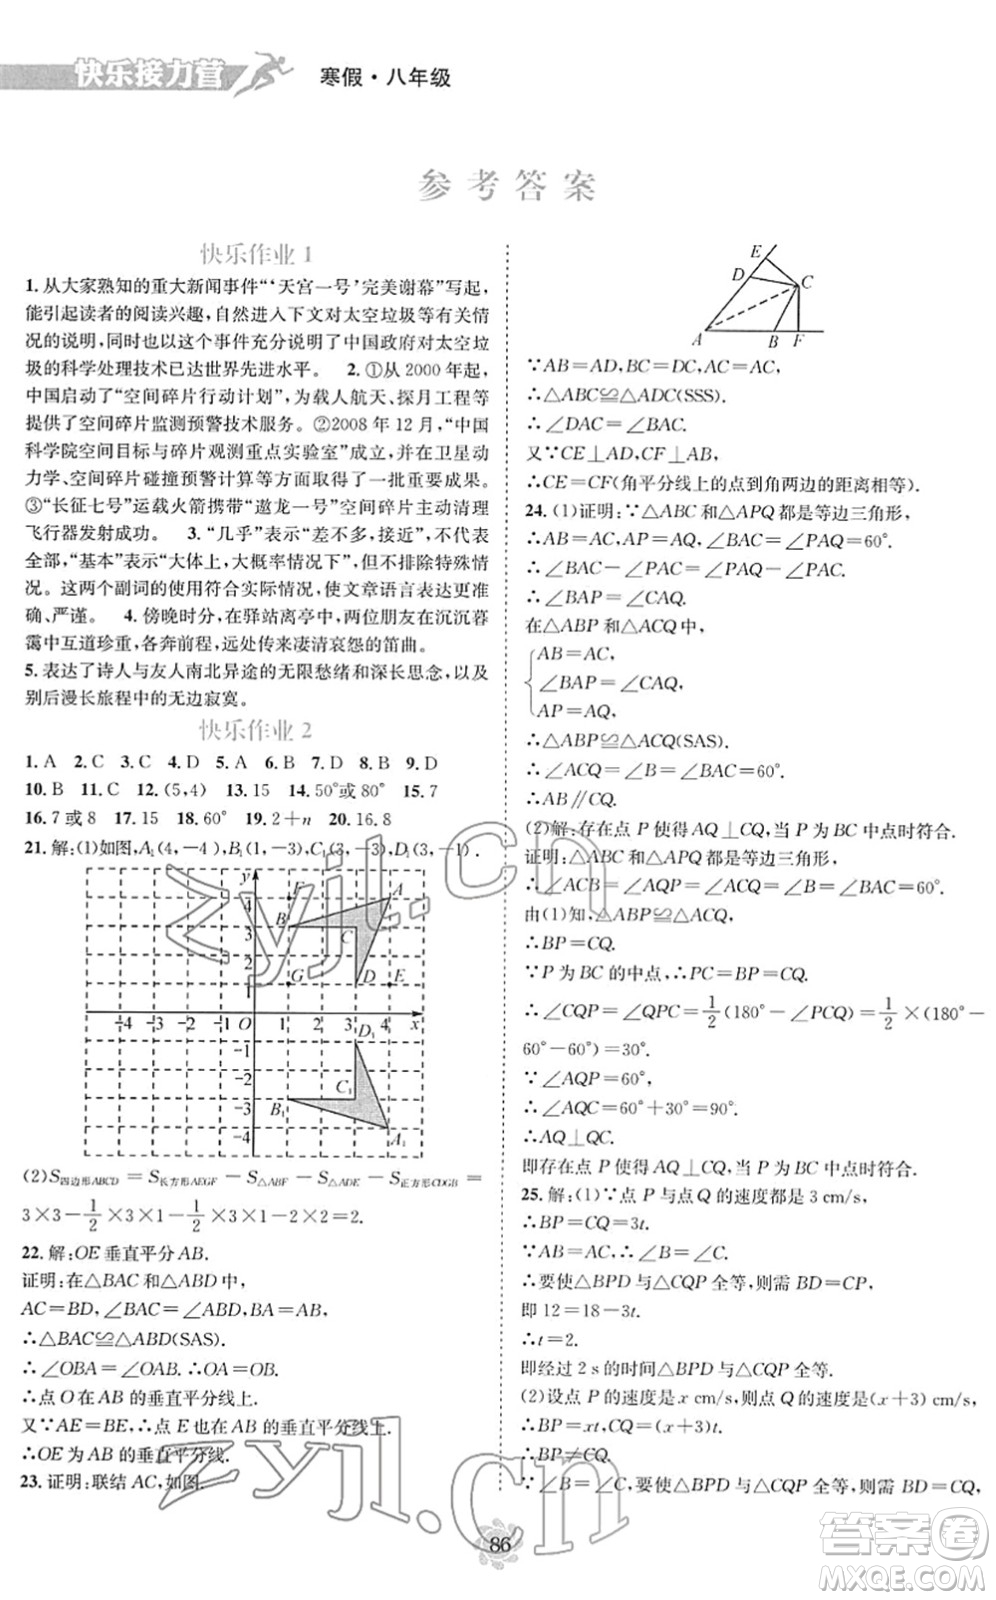 快乐接力营
寒假·八年级
参考答案
快乐作业 1
1. 从大家熟知的重大新闻事件“‘天宫一号’完美谢幕”写起，
能引起读者的阅读兴趣，自然进入下文对太空垃圾等有关情
况的说明，以这个事件充分说明了中国政府对太空垃
圾的科学处理技术已达世界先进水平。 2. ①从 2000 年起，
中国启动了“空间碎片行动计划”，为载人航天、探月工程等
提供了空间碎片监测预警技术服务。②2008 年 12 月，“中国
科学院空间目标与碎片观测重点实验室”成立，并在卫星动
力学、空间碎片碰撞预警计算等方面取得了一批重要成果。
③“长征七号”运载火箭携带“遨龙一号”空间碎片主动清理
飞行器发射成功。 3. “几乎”表示“差不多，接近”，不代表
全部，“基本”表示“大体上，大概率情况下”，但不排除特殊情
况。这两个副词的使用符合实际情况，使文章语言表达更准
确、严谨。 4. 傍晚时分，在驿站离亭中，两位朋友在沉沉暮
霭中互道珍重，各奔前程，远处传来凄清哀怨的笛曲。
5. 表达了诗人与友人南北异途的无限愁绪和深长思念，以及
别后漫长旅程中的无边寂寞。
快乐作业 2
1. A 2. C 3. C 4. D 5. A 6. B 7. D 8. B 9. D
10. B 11. C 12. (5,4) 13. 15 14. 50°或 80° 15. 7
16. 7 或 8 17. 15 18. 60° 19. 2+n 20. 16.8
21. 解：(1)如图，A₁(4,−4),B₁(1,−3),C₁(3,−3),D₁(3,−1).
y
4 F A
3 B C
2
1 G D E
−4 −3 −2 −1 O 1 2 3 4 x
−1 D₁
−2 C₁
−3 B₁
−4 A₁
(2)S四边形ABCD=S长方形AEGF−S△ABF−S△ADE−S正方形CDGB=
3×3−1/2×3×1−1/2×3×1−2×2=2.
22. 解：OE 垂直平分 AB.
证明：在△BAC 和△ABD 中，
AC=BD,∠BAC=∠ABD,BA=AB,
∴△BAC≌△ABD(SAS).
∴∠OBA=∠OAB. ∴OA=OB.
∴点 O 在 AB 的垂直平分线上.
又∵AE=BE,∴点 E 也在 AB 的垂直平分线上.
∴OE 为 AB 的垂直平分线.
23. 证明：联结 AC，如图.
E
D C
A B F
∵AB=AD,BC=DC,AC=AC,
∴△ABC≌△ADC(SSS).
∴∠DAC=∠BAC.
又∵CE⊥AD,CF⊥AB,
∴CE=CF(角平分线上的点到角两边的距离相等).
24. (1)证明：∵△ABC 和△APQ 都是等边三角形，
∴AB=AC,AP=AQ,∠BAC=∠PAQ=60°.
∴∠BAC−∠PAC=∠PAQ−∠PAC.
∴∠BAP=∠CAQ.
在△ABP 和△ACQ 中，
AB=AC,
∠BAP=∠CAQ,
AP=AQ,
∴△ABP≌△ACQ(SAS).
∴∠ACQ=∠B=∠BAC=60°.
∴AB∥CQ.
(2)解：存在点 P 使得 AQ⊥CQ,当 P 为 BC 中点时符合.
证明：∵△ABC 和△APQ 都是等边三角形，
∴∠ACB=∠B=∠AQP=60°.
由(1)知，△ABP≌△ACQ,
∴BP=CQ.
∵P 为 BC 的中点，∴PC=BP=CQ.
∴∠CQP=∠CPQ=1/2(180°−∠PCQ)=1/2×(180°−
60°−60°)=30°.
∵∠AQP=60°,
∴∠AQC=60°+30°=90°.
∴AQ⊥QC.
即存在点 P 使得 AQ⊥CQ,当 P 为 BC 中点时符合.
25. 解：(1)∵点 P 与点 Q 的速度都是 3 cm/s,
∴BP=CQ=3t.
∵AB=AC,∴∠B=∠C.
∴要使△BPD 与△CQP 全等，则需 BD=CP,
即 12=18−3t.
∴t=2.
即经过 2 s 的时间△BPD 与△CQP 全等.
(2)设点 P 的速度是 x cm/s,则点 Q 的速度是(x+3) cm/s,
∴BP=xt,CQ=(x+3)t.
∴BP≠CQ.
∵∠B=∠C,∴要使△BPD 与△CQP 全等，则需 BP=PC,
86
zyjl.cn
zyjl.cn
答案卷
MXQE.COM